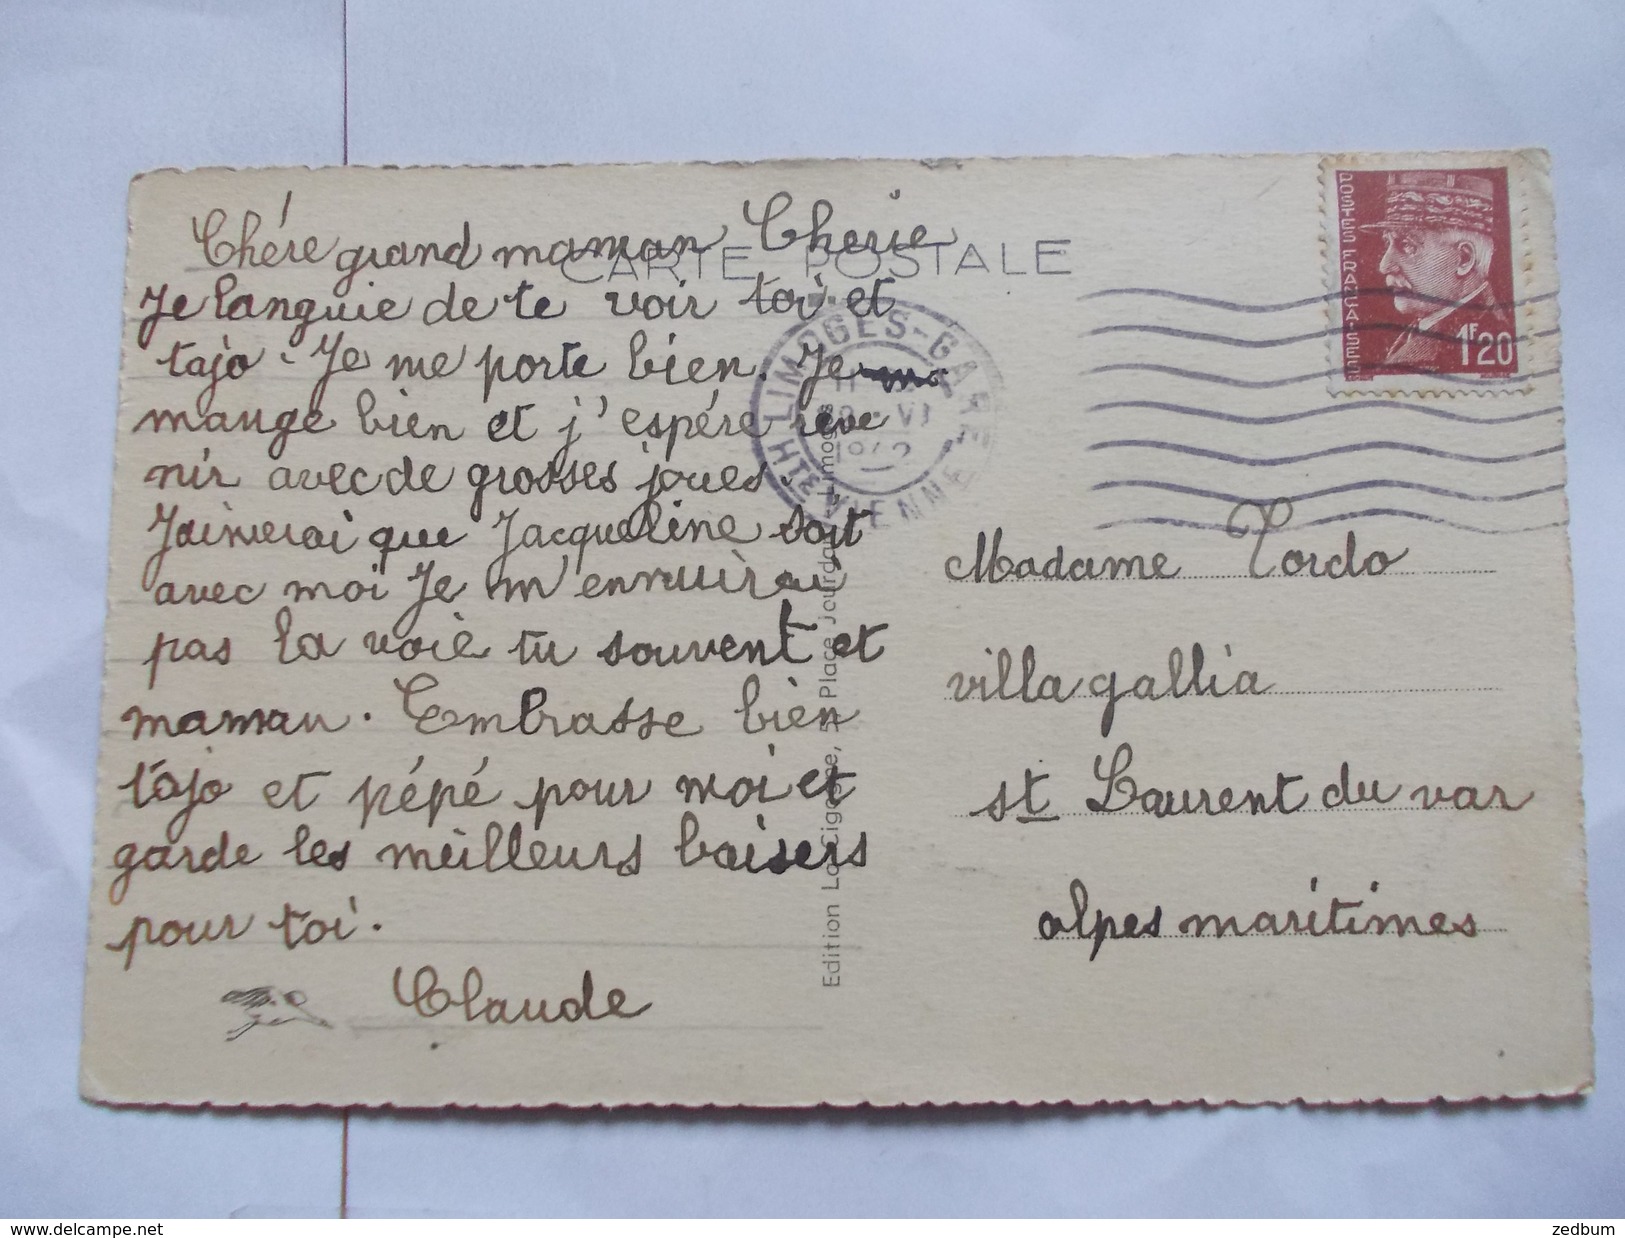 Chére grand maman Cherie
CARTE POSTALE
Je languie de te voir toi et
tajo. Je me porte bien. Je
mange bien et j'espére reve
nir avec de grosses joues.
Jaimerai que Jacqueline soit
avec moi Je m'ennuirai
pas la voie tu souvent et
maman. Embrasse bien
tajo et pépé pour moi et
garde les meilleurs baisers
pour toi.
Claude
Edition La Cigogne, 5 Place Jourdan, Limoges
LIMOGES-GARE
VI
1942
HTE VIENNE
POSTES FRANÇAISES
1F20
Madame Tordo
villa gallia
st Laurent du var
alpes maritimes
zedbum